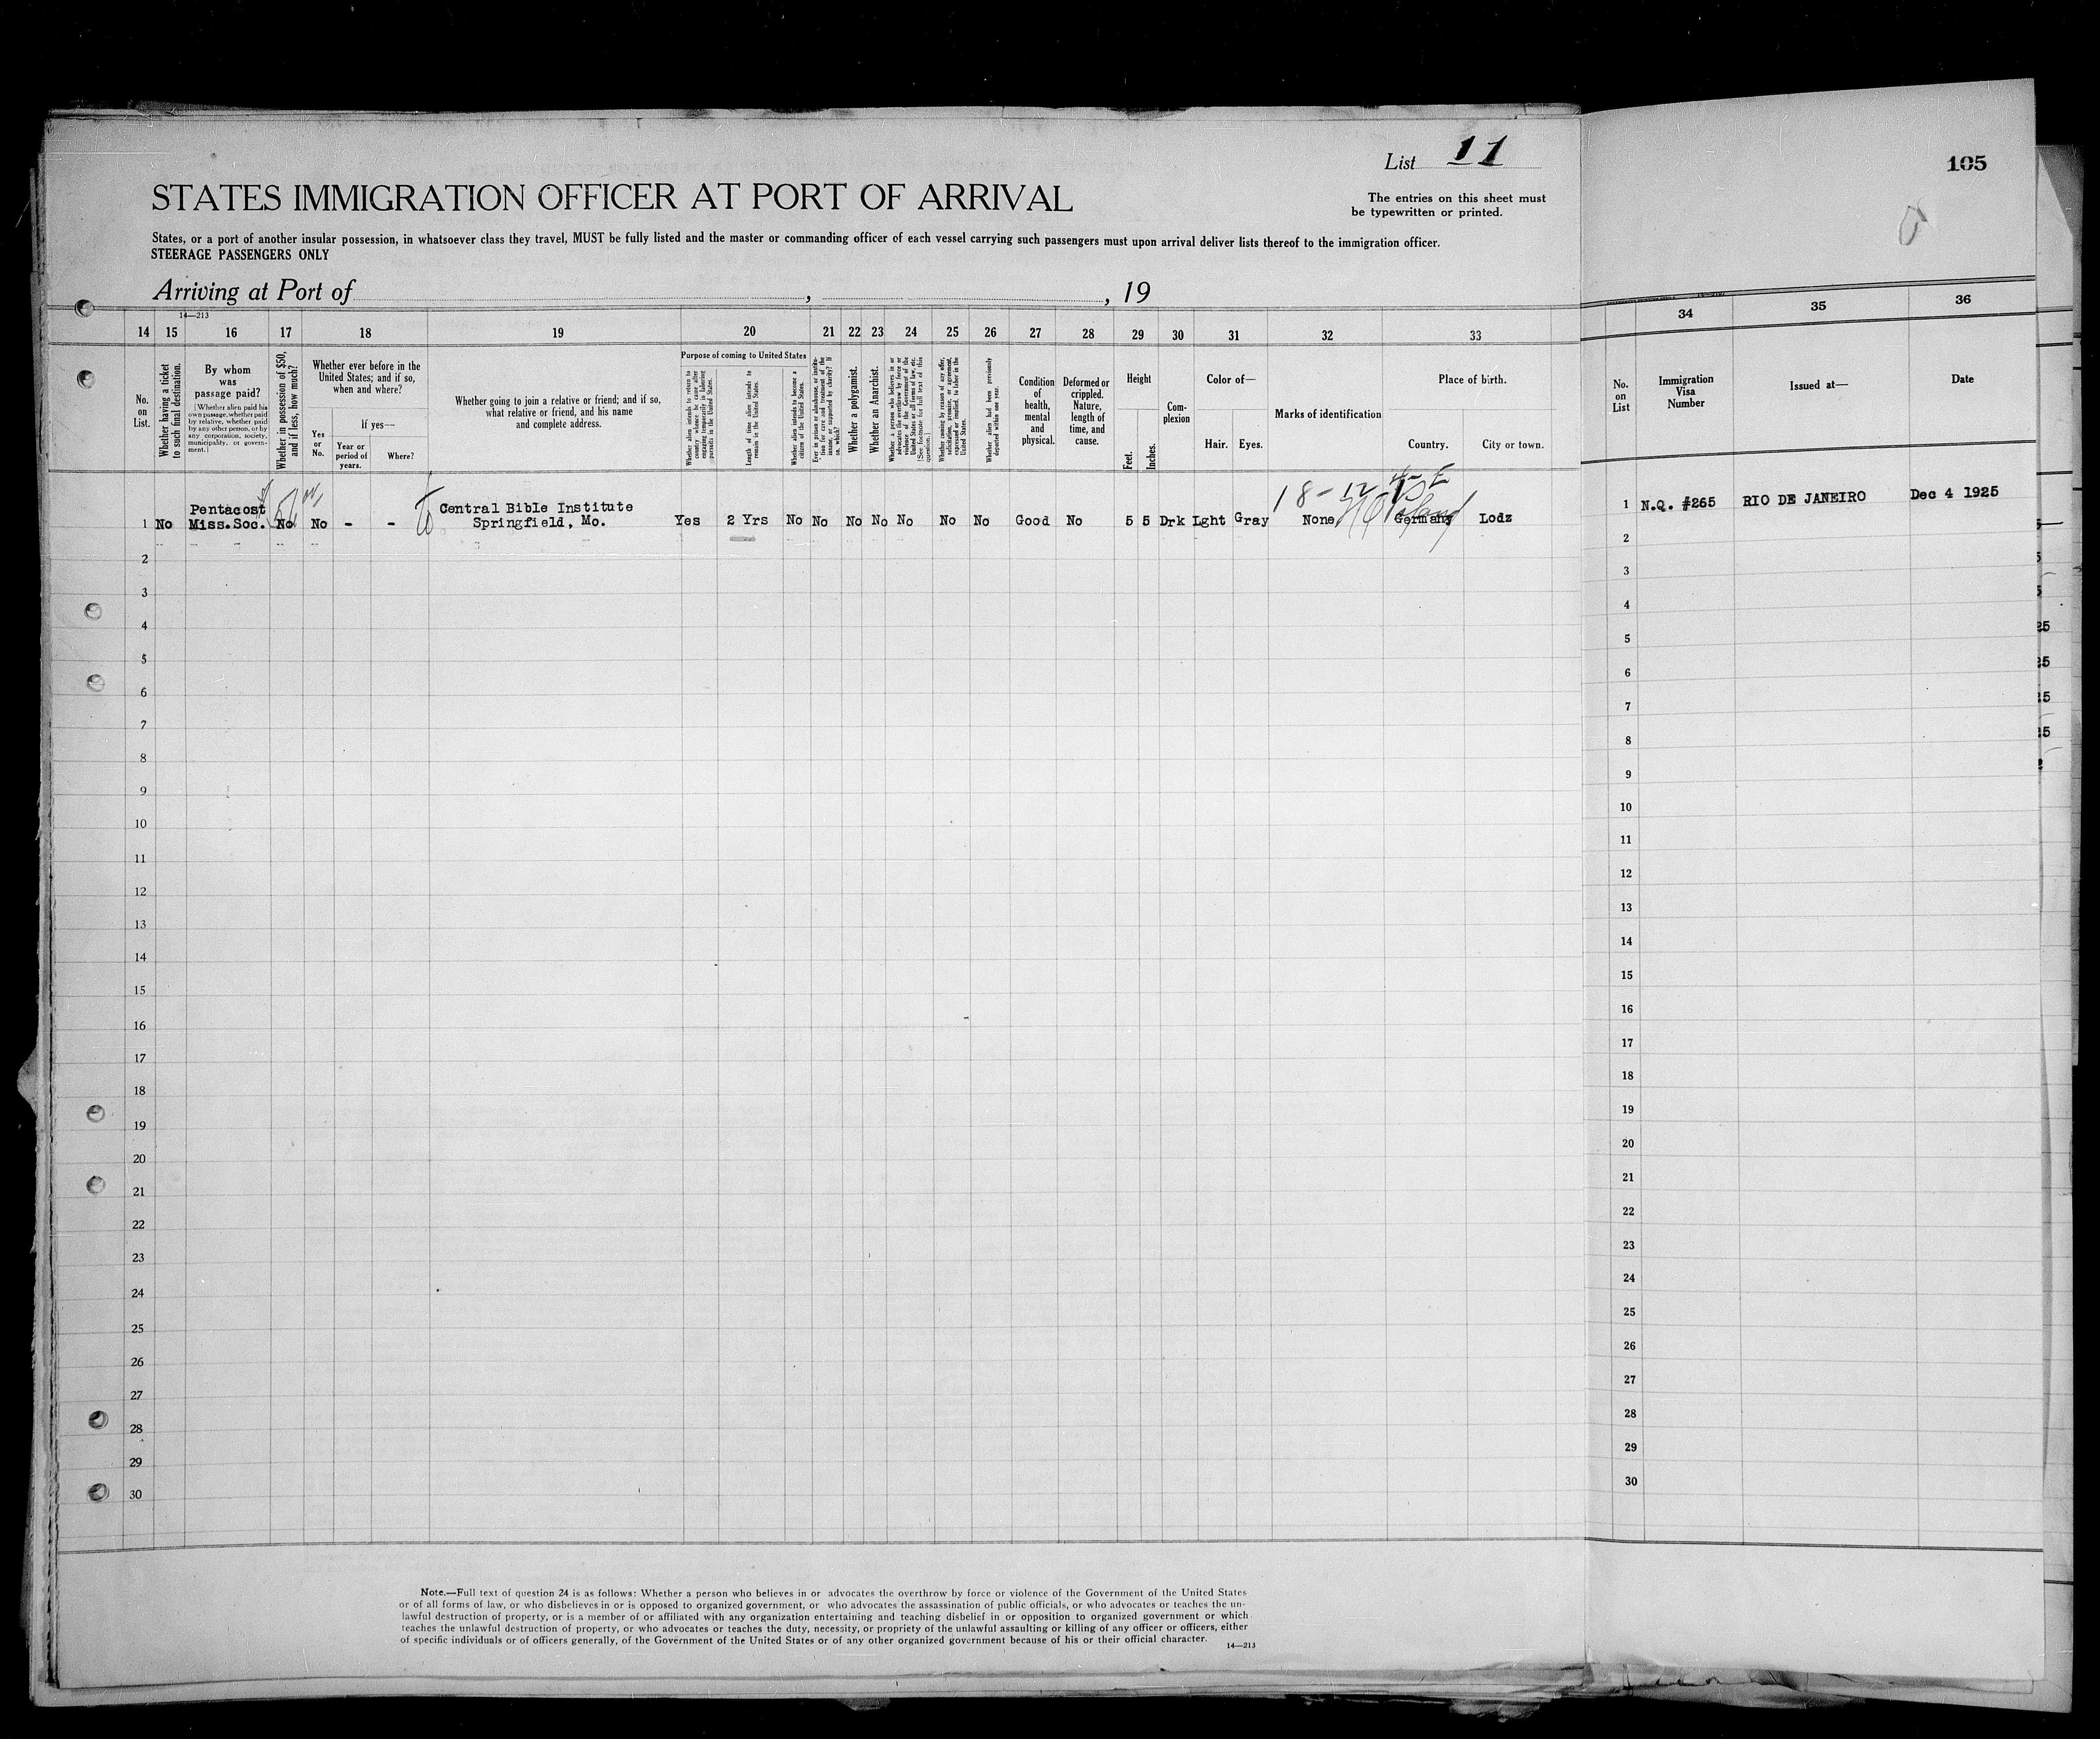 List 11
105
STATES IMMIGRATION OFFICER AT PORT OF ARRIVAL
The entries on this sheet must
be typewritten or printed.
States, or a port of another insular possession, in whatsoever class they travel, MUST be fully listed and the master or commanding officer of each vessel carrying such passengers must upon arrival deliver lists thereof to the immigration officer.
STEERAGE PASSENGERS ONLY
Arriving at Port of , , 19
14—213
14 15 16 17 18 19 20 21 22 23 24 25 26 27 28 29 30 31 32 33 34 35 36
No. on List.
Whether having a ticket to such final destination.
By whom was passage paid?
[Whether alien paid his own passage, whether paid by relative, whether paid by any other person, or by any corporation, society, municipality, or government.]
Whether in possession of $50, and if less, how much?
Whether ever before in the United States; and if so, when and where?
Yes or No.
If yes—
Year or period of years.
Where?
Whether going to join a relative or friend; and if so, what relative or friend, and his name and complete address.
Purpose of coming to United States
Whether alien intends to return to country whence he came after engaging temporarily in laboring pursuits in the United States.
Length of time alien intends to remain in the United States.
Whether alien intends to become a citizen of the United States.
Ever in prison or almshouse, or institution for care and treatment of the insane, or supported by charity? If so, which?
Whether a polygamist.
Whether an Anarchist.
Whether a person who believes in or advocates the overthrow by force or violence of the Government of the United States or all forms of law, etc. [See footnote for full text of this question.]
Whether coming by reason of any offer, solicitation, promise, or agreement, expressed or implied, to labor in the United States.
Whether alien had been previously deported within one year.
Condition of health, mental and physical.
Deformed or crippled. Nature, length of time, and cause.
Height
Feet.
Inches.
Com-plexion
Color of—
Hair.
Eyes.
Marks of identification
Place of birth.
Country.
City or town.
No. on List
Immigration Visa Number
Issued at—
Date
18-12
1 No Pentacost Miss.Soc. No No - - Central Bible Institute Springfield, Mo. Yes 2 Yrs No No No No No No No Good No 5 5 Drk Lght Gray None Germany Poland Lodz 1 N.Q. #265 RIO DE JANEIRO Dec 4 1925
2 2
3 3
4 4
5 5
6 6
7 7
8 8
9 9
10 10
11 11
12 12
13 13
14 14
15 15
16 16
17 17
18 18
19 19
20 20
21 21
22 22
23 23
24 24
25 25
26 26
27 27
28 28
29 29
30 30
Note.—Full text of question 24 is as follows: Whether a person who believes in or advocates the overthrow by force or violence of the Government of the United States
or of all forms of law, or who disbelieves in or is opposed to organized government, or who advocates the assassination of public officials, or who advocates or teaches the un-
lawful destruction of property, or is a member of or affiliated with any organization entertaining and teaching disbelief in or opposition to organized government or which
teaches the unlawful destruction of property, or who advocates or teaches the duty, necessity, or propriety of the unlawful assaulting or killing of any officer or officers, either
of specific individuals or of officers generally, of the Government of the United States or of any other organized government because of his or their official character.
14—213